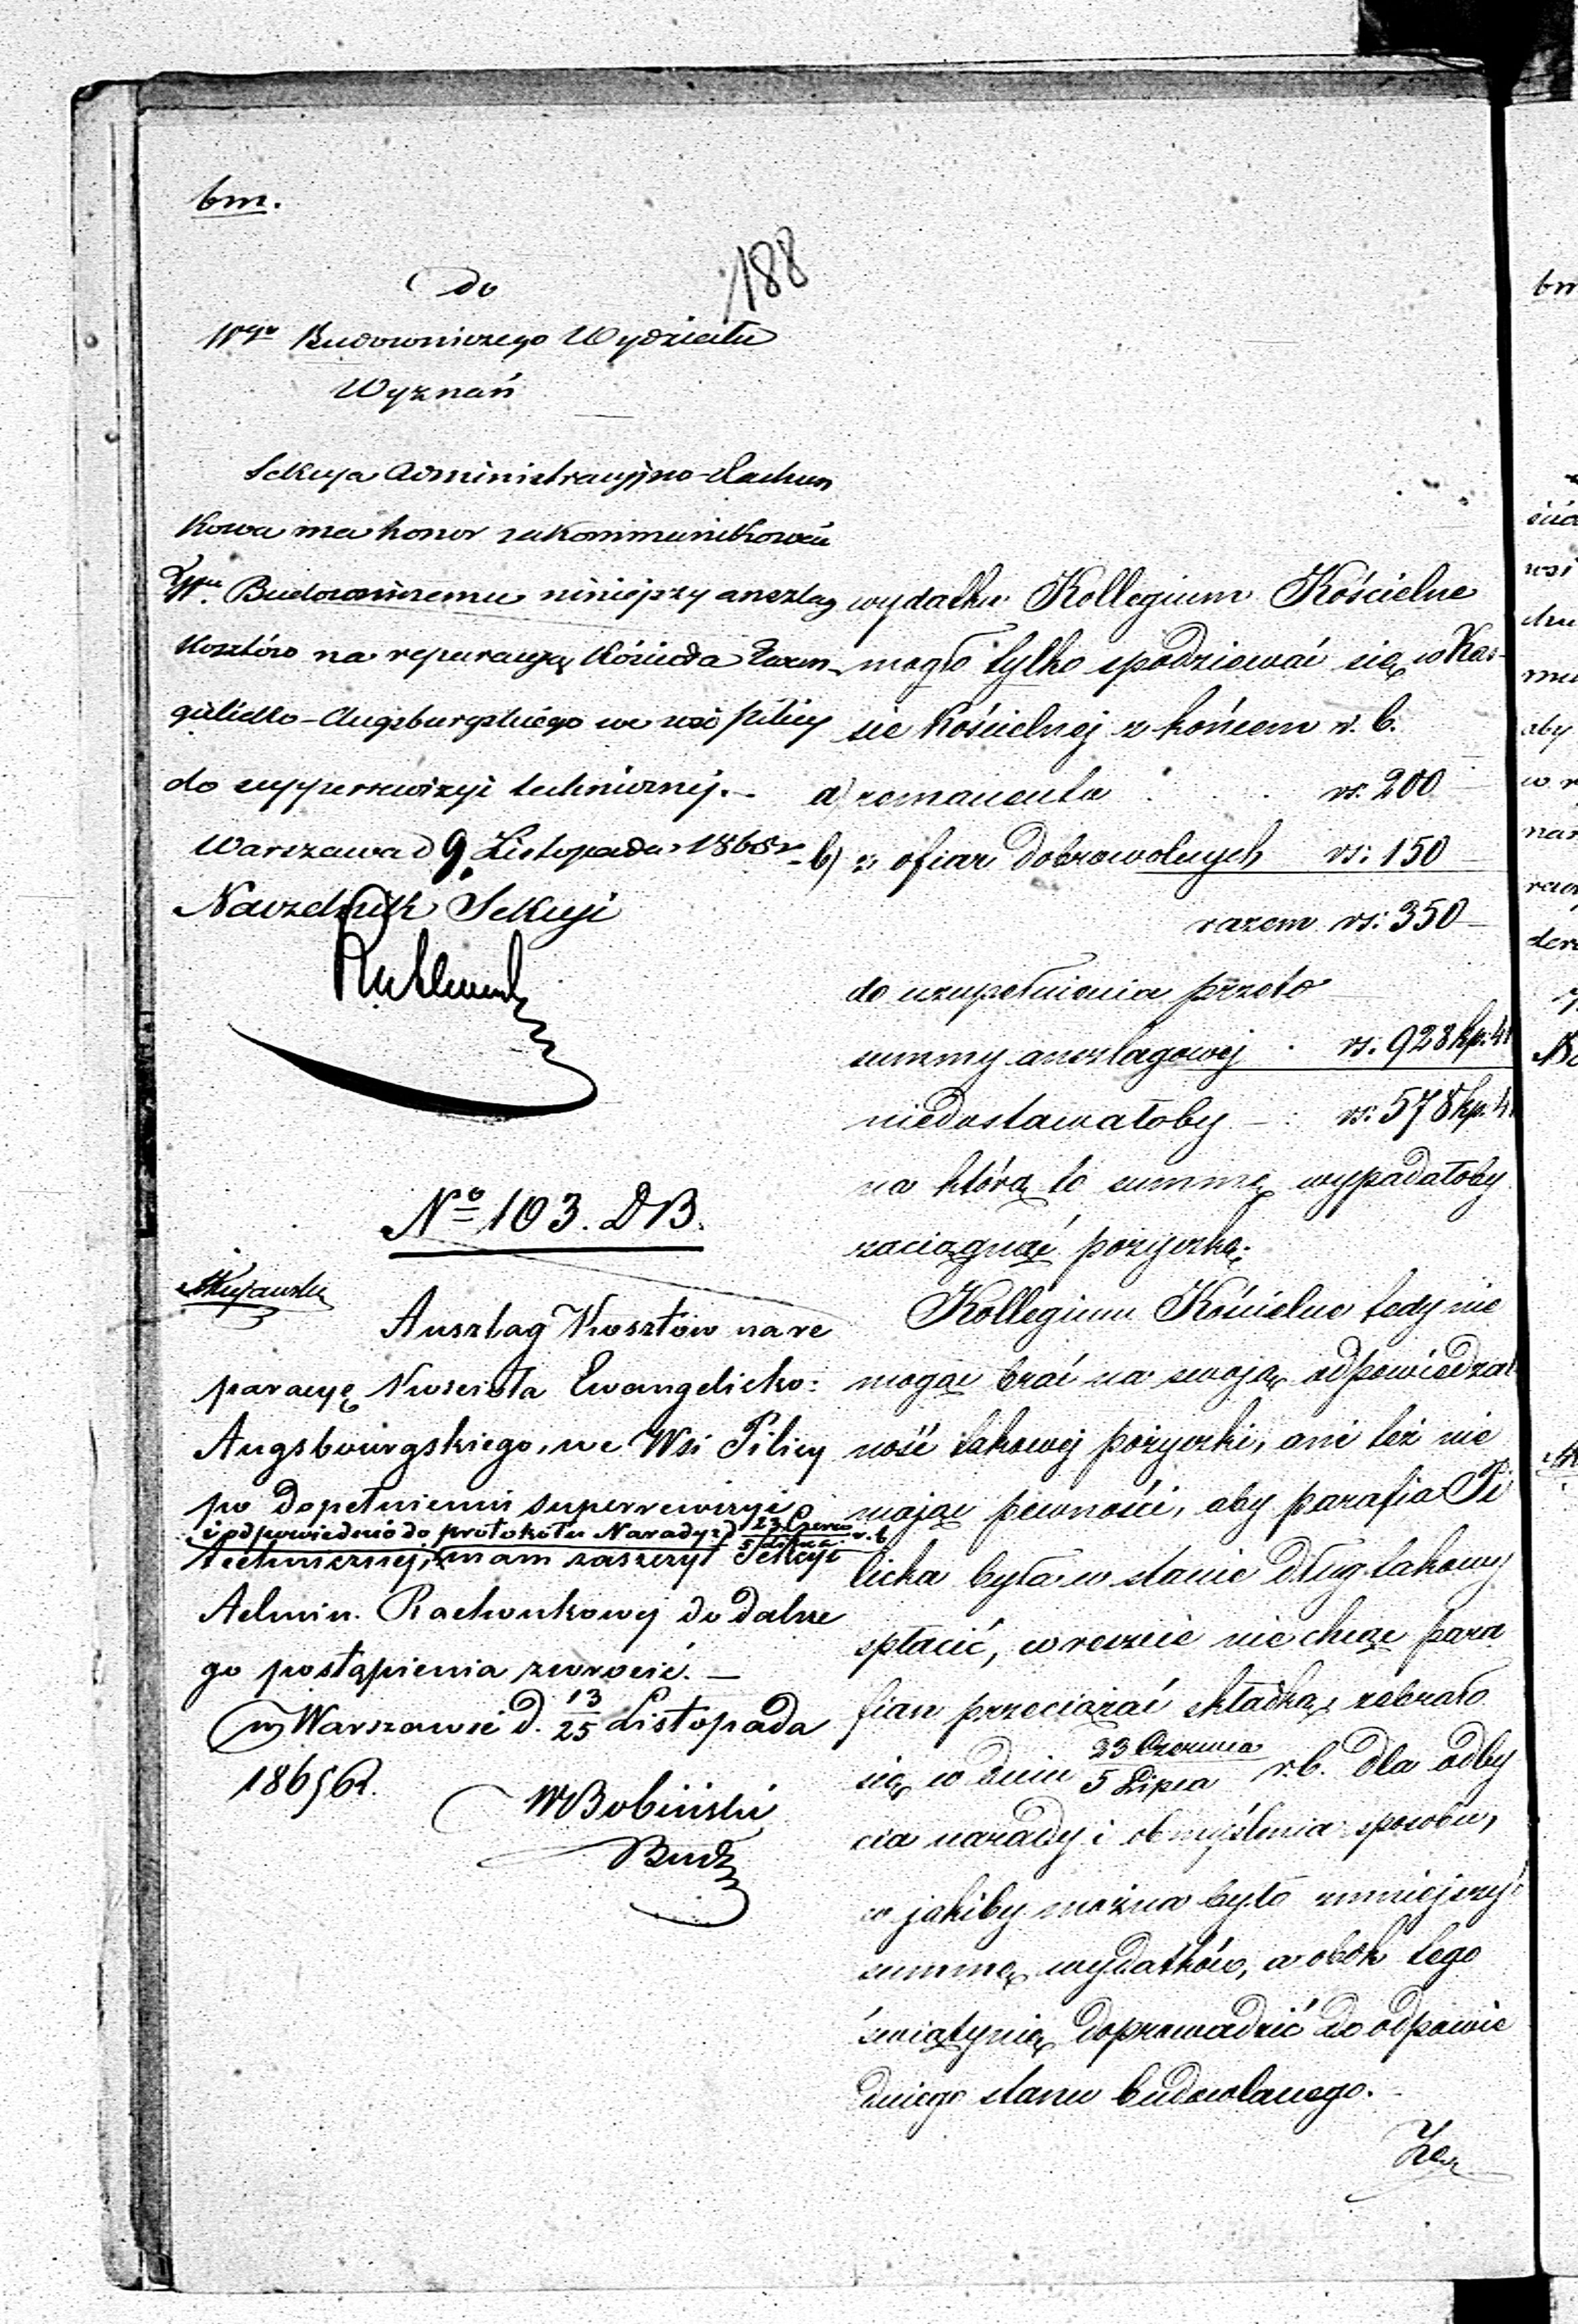 bm.
188
do
Wgo Budowniczego Wydziału
Wyznań
Sekcya Administracyjno-Rachun
kowa ma honor zakommunikować
JWu. Budowniczemu niniejszy anszlag
kosztów na reparacyą kościoła Ewan-
gielicko-Augsburgskiego we wsi Pilicy
do supperrewizyi technicznej.-
Warszawa d 9 Listopada 1865 r
Naczelnik Sekcyi
No 103. DB.
Anszlag Kosztów na re
paracyę Kościoła Ewangelicko:
Augsbourgskiego, we Wsi Pilicy
po dopełnieniu superrewizyi
i odpowiednio do protokołu Narady z d 23 Czerwca / 5 Lipca r.b
technicznej, mam zaszczyt Sekcyi
Admin. Rachunkowej do dalsze
go postąpienia zwrócić. —
w Warszawie d. 13/25 Listopada
1865 R.
WBobiński
Bud
wydatku Kollegium Kościelne
mogło tylko spodziewać się w Kas-
sie Kościelnej z końcem r. b.
a) remanentu . . rs. 200
b) z ofiar dobrowolnych rs: 150
razem rs: 350
do uzupełnienia przeto
summy anszlagowej . rs. 928 kp. 41
niedostawałoby - : rs: 578 kp. 41
na którą to summę wypadałoby
zaciągnąć pożyczkę.
Kollegium Kościelne tedy nie
mogąc brać na swoją odpowiedzal
ność takowej pożyczki, ani też nie
mając pewności, aby parafia Pi
licka była w stanie dług takowy
spłacić, wreszcie nie chcąc para
fian przeciążać składką, zebrało
się w dniu 23 Czerwca / 5 Lipca r.b. dla odby
cia narady i obmyślenia sposobu,
w jakiby można było zmniejszyć
summę wydatków, a obok tego
świątynię doprowadzić do odpowie
dniego stanu budowlanego.